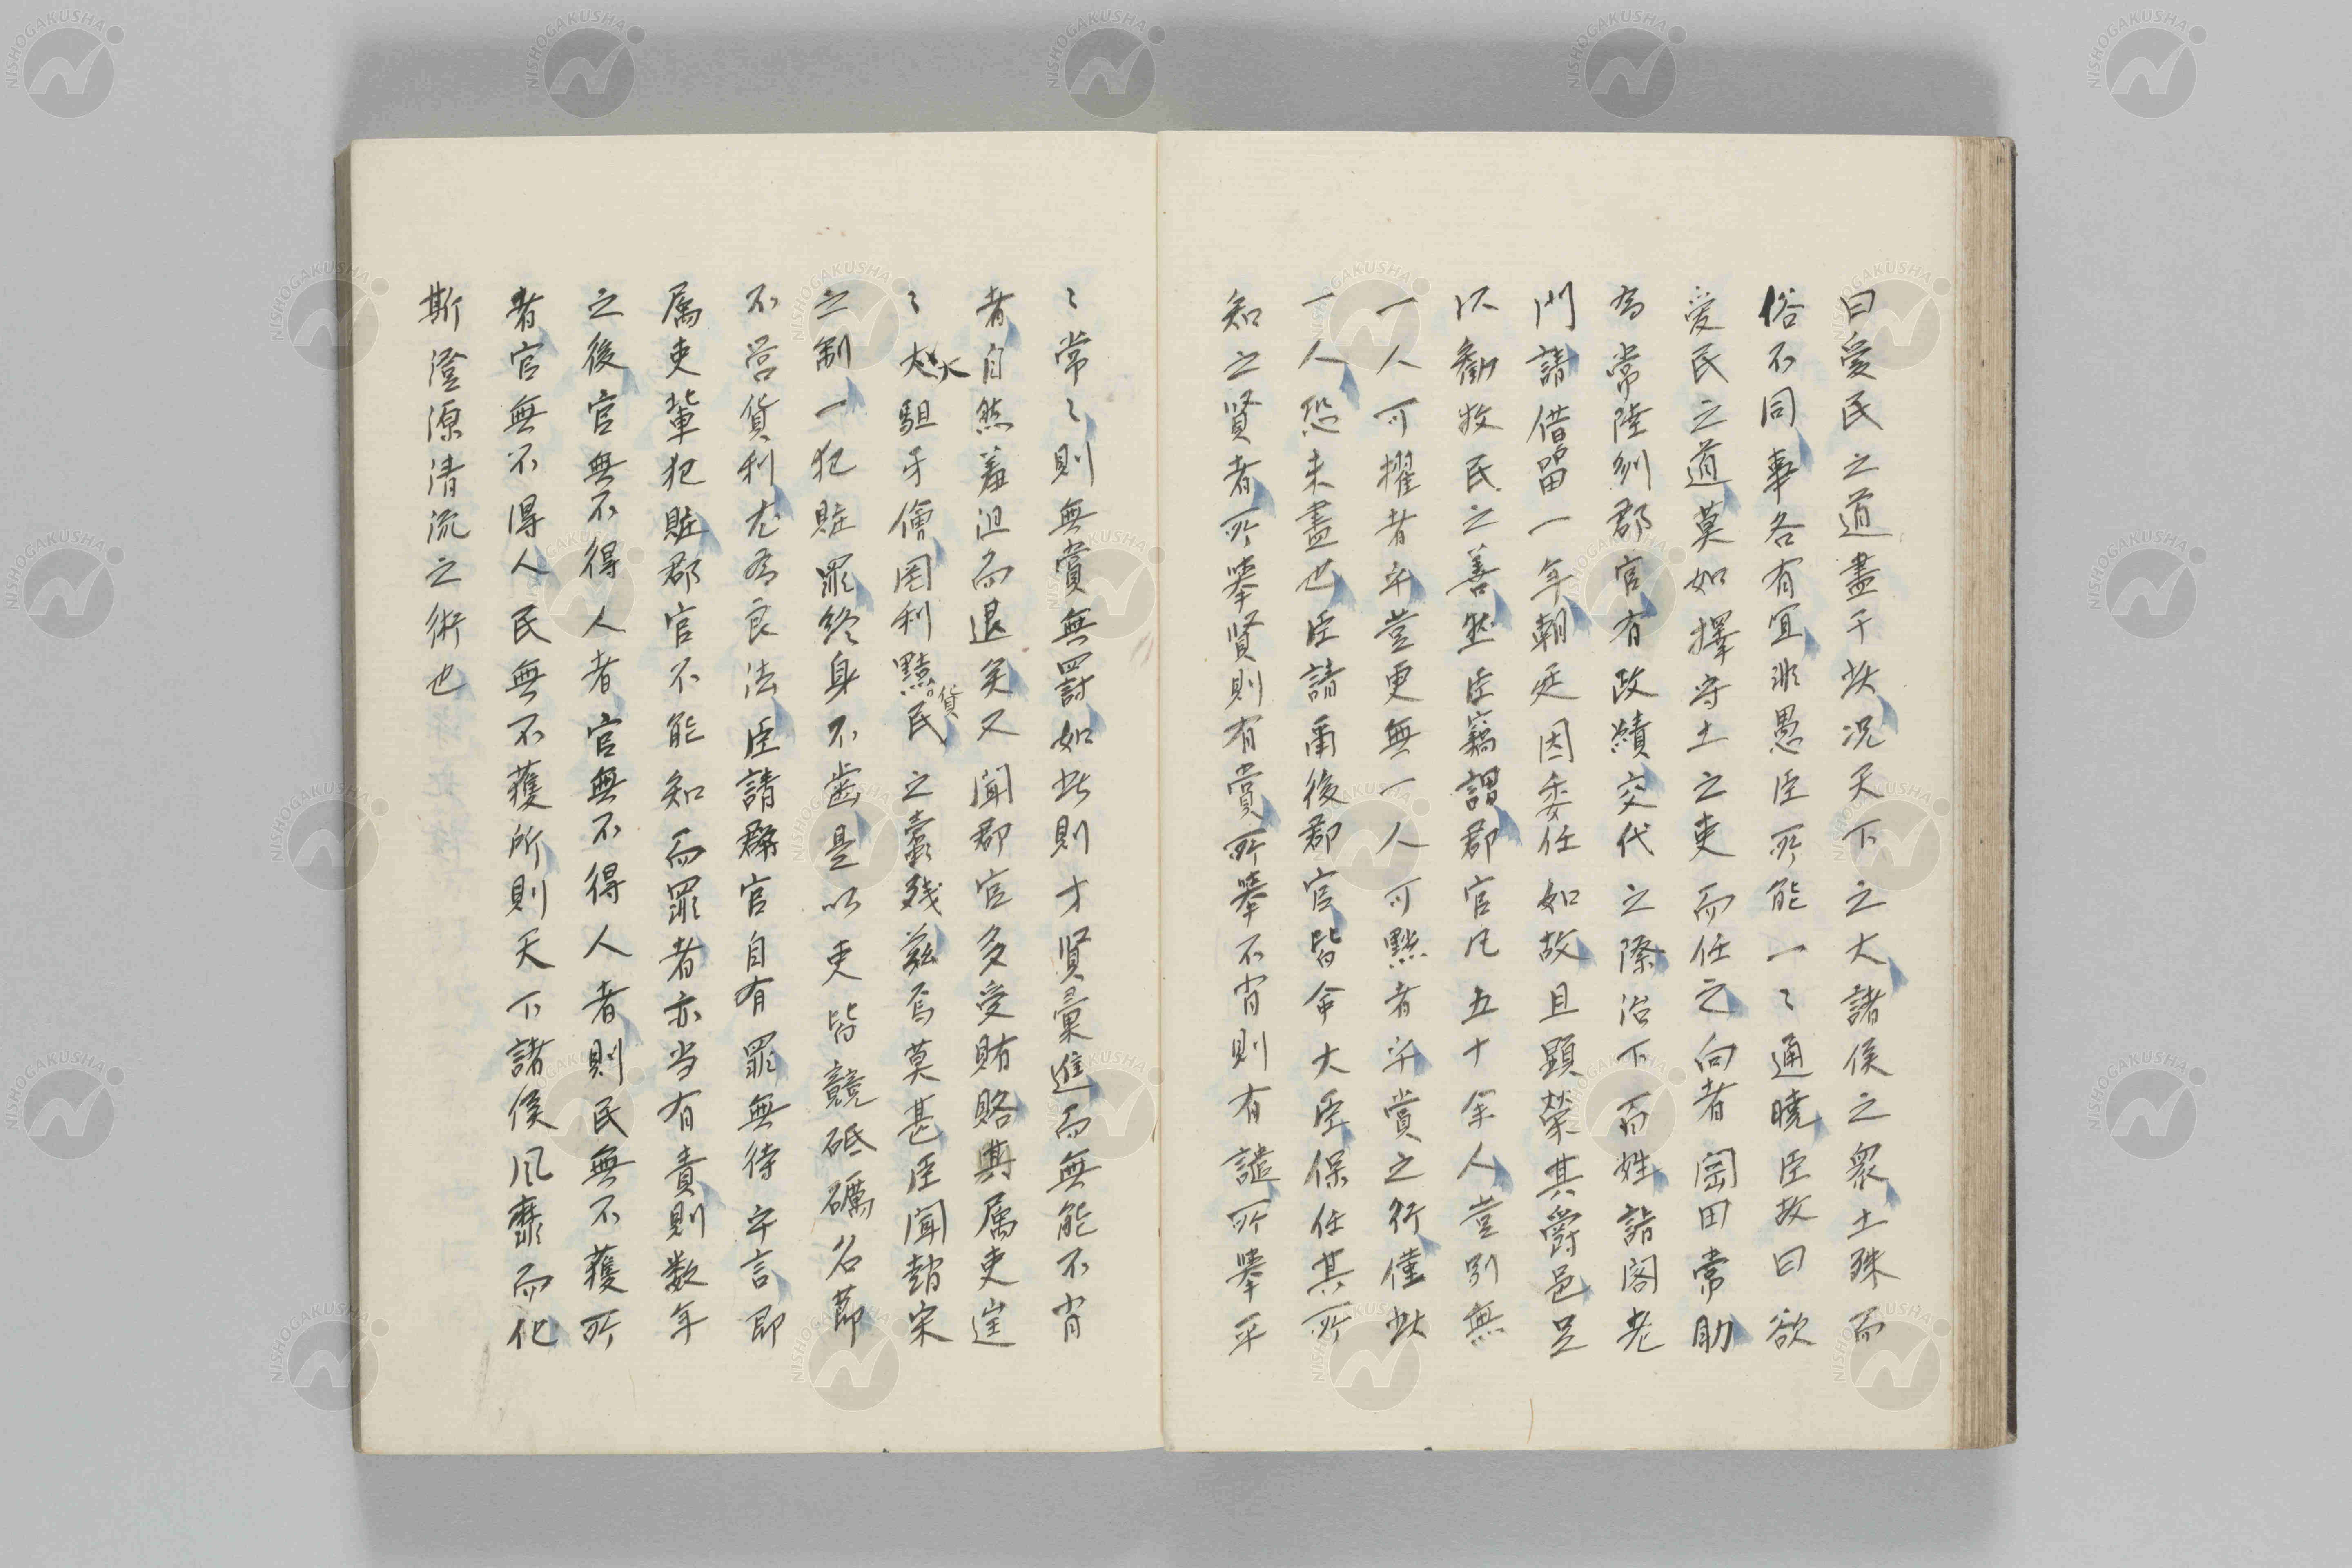 曰愛民之道盡于此况天下之大諸侯之衆土殊而
俗不同事各有宜非愚臣所能一〻通曉臣故曰欲
愛民之道莫如擇守土之吏而任之向者岡田常助
為常陸列郡官有政績交代之際治下百姓詣閣老
門請借留一年朝廷因委任如故且顕榮其爵邑足
以勸牧民之善然臣竊謂郡官凡五十余人豈別無
一人可擢者乎豈更無一人可黜者乎賞之行僅此
一人恐未盡也臣請甫後郡官皆命大臣保任其所
知之賢者所挙賢則有賞所挙不肖則有譴所挙平
〻常〻則無賞無罰如此則才賢彙進而無能不肖
者自然羞沮而退矣又聞郡官多受賄賂其属吏往
〻大大駔牙儈罔利黷貨民之蠹残茲焉莫甚臣聞趙宋
之制一犯贓罪終身不歯是以吏皆競砥礪名節
不営貨利尤為良法臣請群官自有罪無待乎言即
属吏輩犯贓郡官不能知而罪者亦当有責則数年
之後官無不得人者官無不得人者則民無不獲所
者官無不得人民無不獲所則天下諸侯風靡而化
斯澄源清流之術也
NISHOGAKUSHA